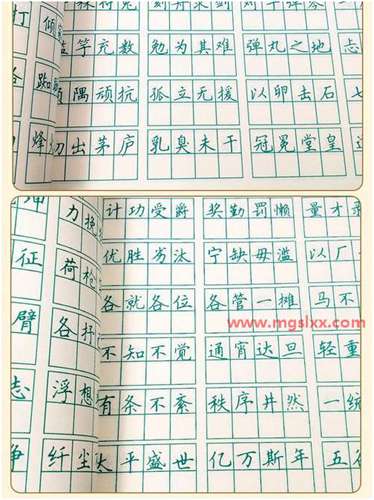 打 倾
竽充数 勉为其难 弹丸之地 志
各
隅顽抗 孤立无援 以卵击石
蜂 出茅庐 乳臭未干 冠冕堂皇
力挽 计功受爵 奖勤罚懒 量才
征 优胜劣汰 宁缺毋滥 以厂
荷枪 各就各位 各管一摊 马不
www.mgslxx.com
臂 各抒 不知不觉 通宵达旦 轻重
志 浮想 有条不紊 秩序井然 一统
纤尘 太平盛世 亿万斯年 五